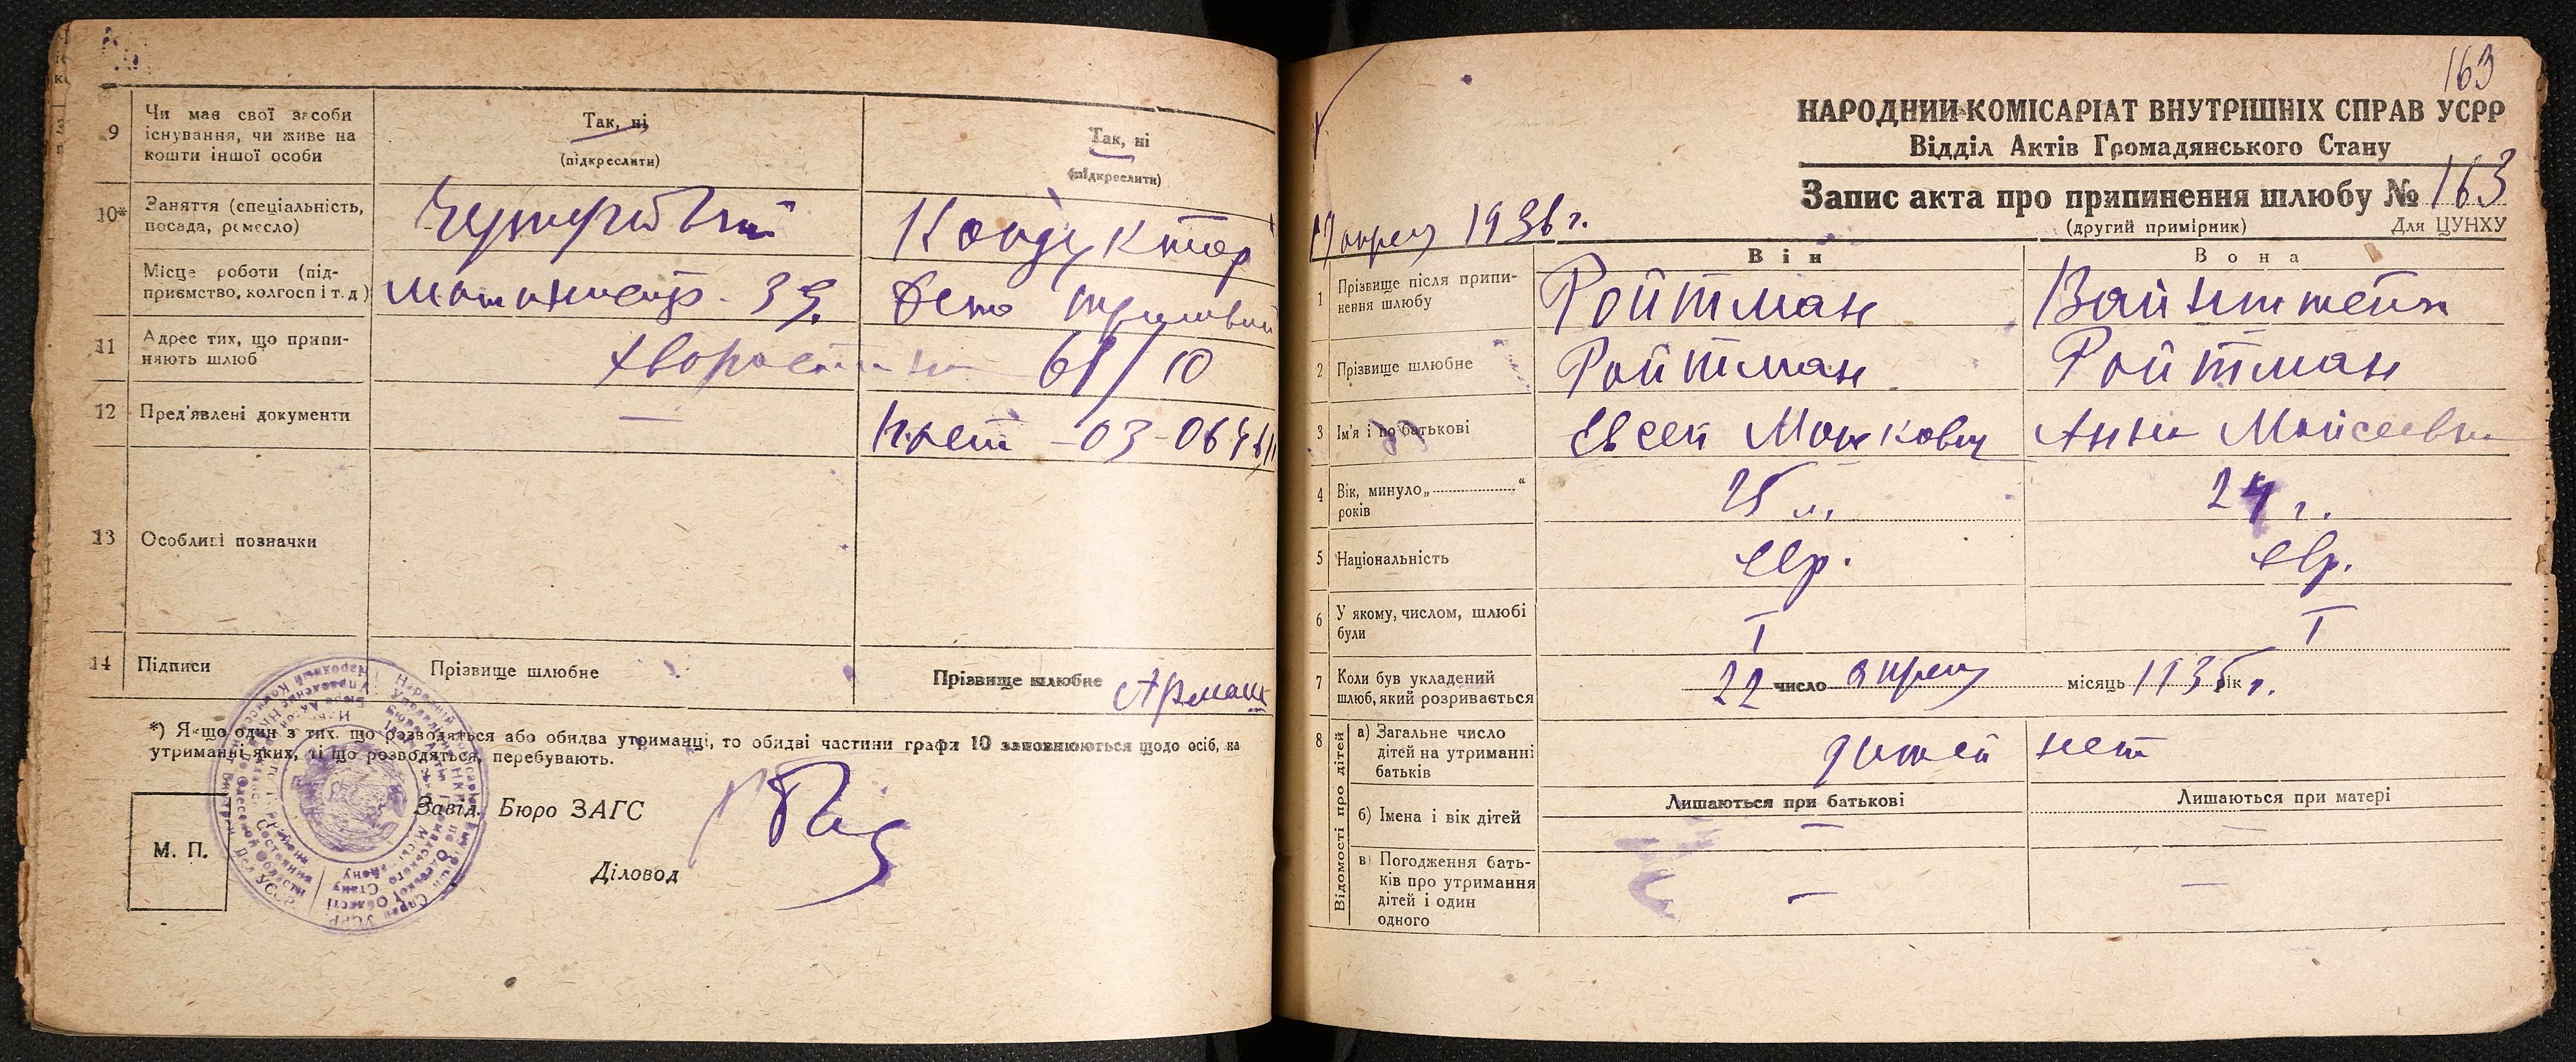 9
Чи має свої засоби
існування, чи живе на
кошти іншої особи
Так, ні
(підкреслити)
Так, ні
(підкреслити)
10*
Заняття (спеціальність,
посада, ремесло)
Кондуктор
11
Місце роботи (під-
приємство, колгосп і т.д)
Депо
Адрес тих, що припи-
няють шлюб
61/10
12
Пред'явлені документи
—
03-064
13
Особливі позначки
14
Підписи
Прізвище шлюбне
Прізвище шлюбне
*) Якщо один з тих, що розводяться або обидва утриманці, то обидві частини графи 10 заповнюються щодо осіб, на
утриманні яких, ті що розводяться, перебувають.
М. П.
Завід. Бюро ЗАГС
Діловод
163
НАРОДНИЙ КОМІСАРІАТ ВНУТРІШНІХ СПРАВ УСРР
Відділ Актів Громадянського Стану
Запис акта про припинення шлюбу № 163
(другий примірник)
Для ЦУНХУ
1936 г.
Він
Вона
1
Прізвище після припи-
нення шлюбу
Ройтман
Вайнштейн
2
Прізвище шлюбне
Ройтман
Ройтман
3
Ім'я і по батькові
Евсей Мошкович
Анна Мойсеевна
4
Вік, минуло „ “
років
25 л.
24 г.
5
Національність
евр.
евр.
6
У якому, числом, шлюбі
були
I
I
7
Коли був укладений
шлюб, який розривається
22 число апрель місяць 1935 рік г.
8
Відомості про дітей
а) Загальне число
дітей на утриманні
батьків
детей нет
Лишаються при батькові
Лишаються при матері
б) Імена і вік дітей
—
—
в) Погодження бать-
ків про утримання
дітей і один
одного
—
—